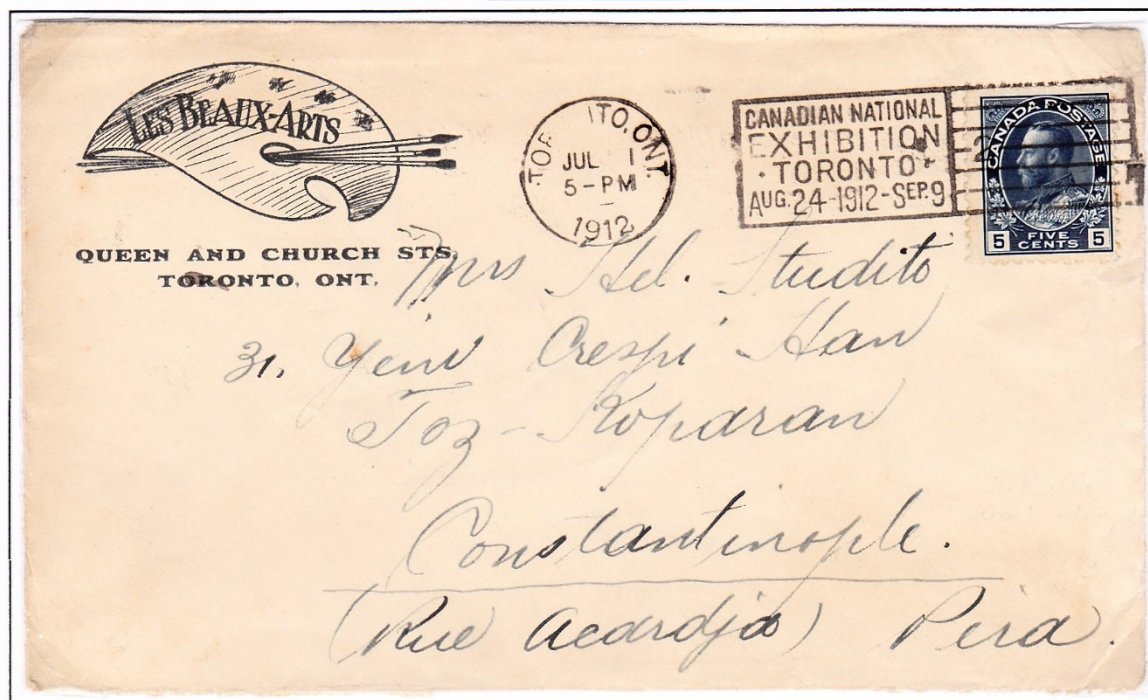 LES BEAUX-ARTS
QUEEN AND CHURCH STS.
TORONTO, ONT.
TORONTO, ONT.
JUL 1
5-PM
1912
CANADIAN NATIONAL
EXHIBITION
·TORONTO·
AUG. 24-1912-SEP. 9
CANADA POSTAGE
5 FIVE CENTS 5
Mrs Hel. Studito
31, Yeni Crespi Han
Toz-Koparan
Constantinople.
(Rue Acardja) Pera.